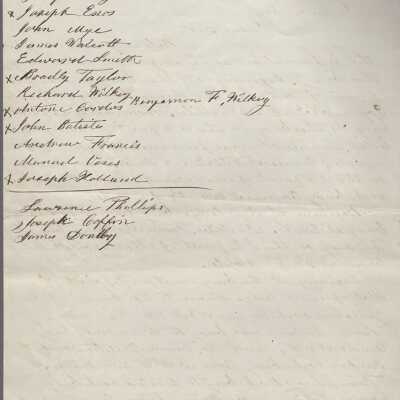 x Joseph Enos
John Mye
James Walcott
Edward Smith
x Bradly Taylor
Richard Wilkey
x Antone Cordos Benjamon F. Wilkey
x John Batiste
Andrew Francis
Manuel Voses
x Joseph Holland
Lawrence Phillips
Joseph Coffin
James Donley